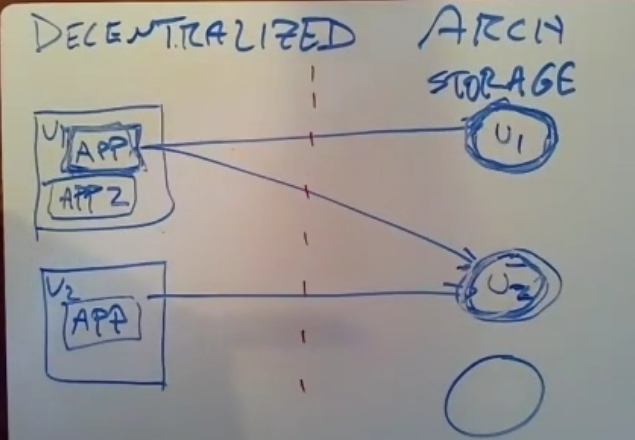 DECENTRALIZED ARCH
STORAGE
U1
APP
APP 2
U1
U2
APP
U2